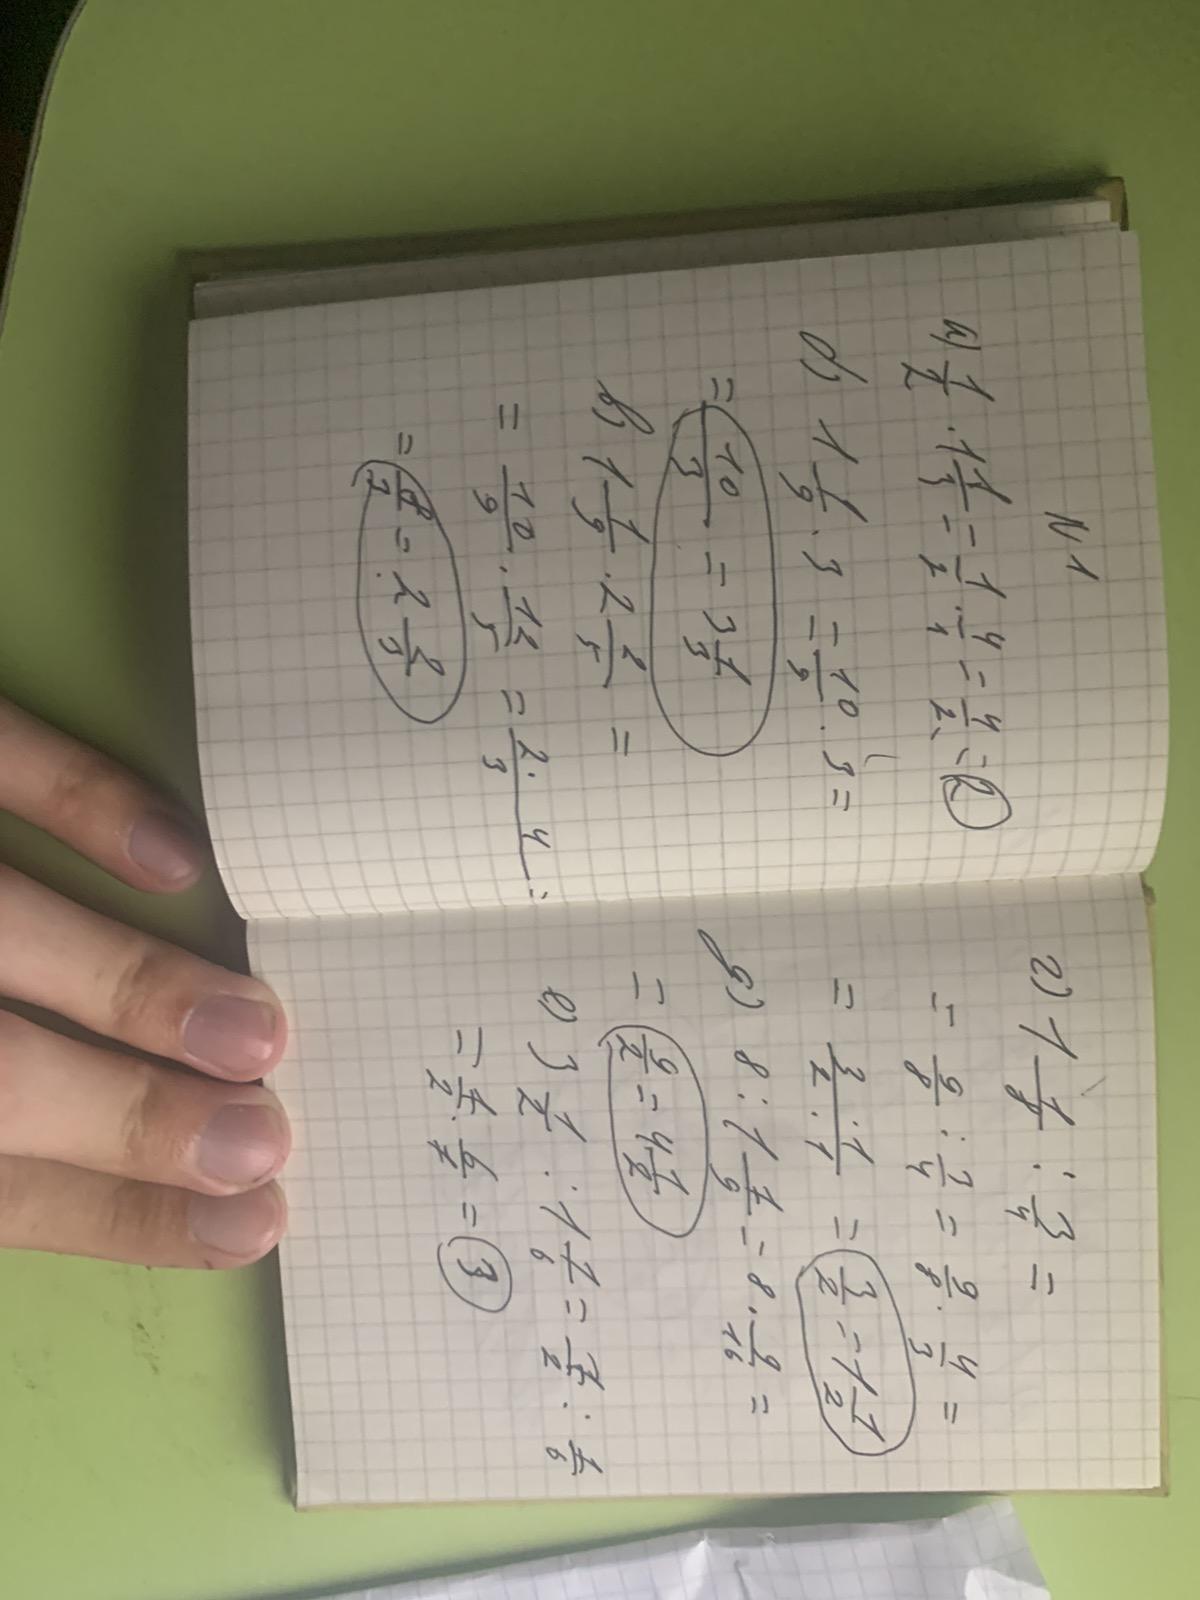 N 1
а) 1/2 · 1 1/3 = 1/2 · 4/1 = 4/2 = 2
б) 1 1/9 · 3 = 10/9 · 3 =
= 10/3 = 3 1/3
в) 1 1/9 · 2 2/5 =
= 10/9 · 12/5 = 2 · 4/3 =
= 8/3 = 2 2/3
г) 1 1/8 : 3/4 =
= 9/8 : 3/4 = 9/8 · 4/3 =
= 3 · 1/2 · 1 = 3/2 = 1 1/2
д) 8 : 1 7/9 = 8 · 9/16 =
= 9/2 = 4 1/2
е) 3 1/2 : 1 1/6 = 7/2 : 7/6
= 7/2 · 6/7 = 3